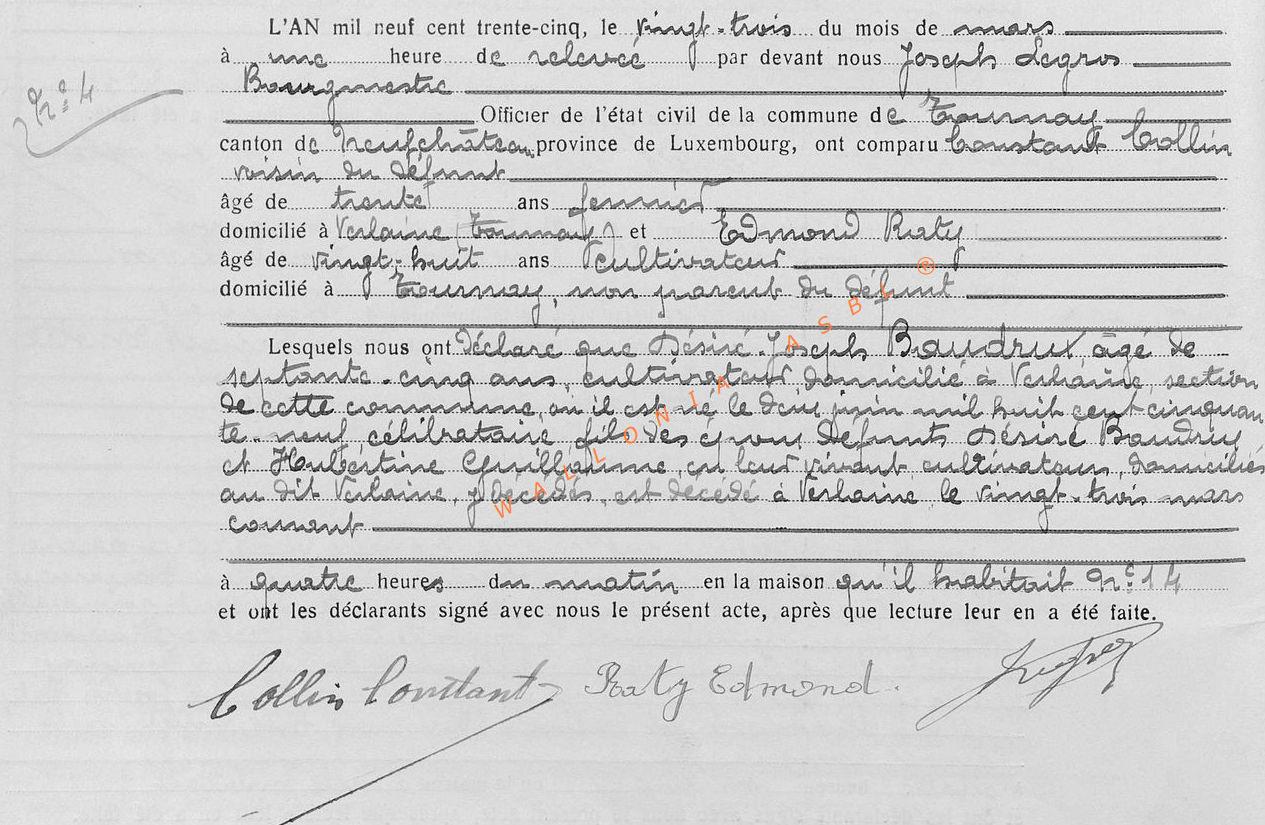 L'AN mil neuf cent trente-cinq, le vingt-trois du mois de mars
à une heure de relevée par devant nous Joseph Legros
Bourgmestre
N° 4
Officier de l'état civil de la commune de Tournay
canton de Neufchâteau province de Luxembourg, ont comparu Constant Collin
voisin du défunt
âgé de trente ans fermier
domicilié à Verlaine (Tournay) et Edmond Raty
âgé de vingt-huit ans cultivateur
domicilié à Tournay, non parent du défunt
Lesquels nous ont déclaré que Désiré-Joseph Baudrux, âgé de
septante-cinq ans, cultivateur, domicilié à Verlaine, section
de cette commune, où il est né le juin mil huit cent cinquan
te-neuf, célibataire, fils des époux défunts Désiré Baudrux
et Hubertine Guillaume, en leur vivant cultivateurs, domiciliés
au dit Verlaine, y décédés, est décédé à Verlaine, le vingt-trois mars
courant
à quatre heures du matin en la maison qu'il habitait N° 14
et ont les déclarants signé avec nous le présent acte, après que lecture leur en a été faite.
Collin Constant Raty Edmond.
WALLONIA ASBL ®